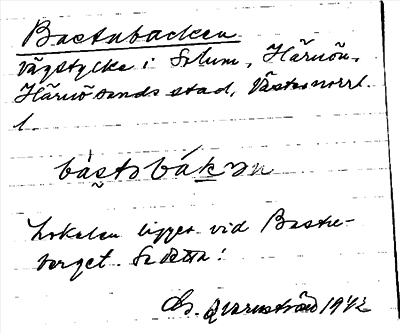 Bastubacken
Vägstycke i Solum, Härnön,
Härnösands stad, Västernorrl.
l.
bàstobák​ən
Lokalen ligger vid Bastu-
berget. Se detta!
G. Qvarnström 1942